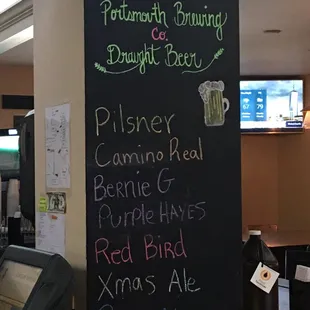 Portsmouth Brewing
Co.
Draught Beer
Pilsner
Camino Real
Bernie G
Purple HAYES
Red Bird
Xmas Ale